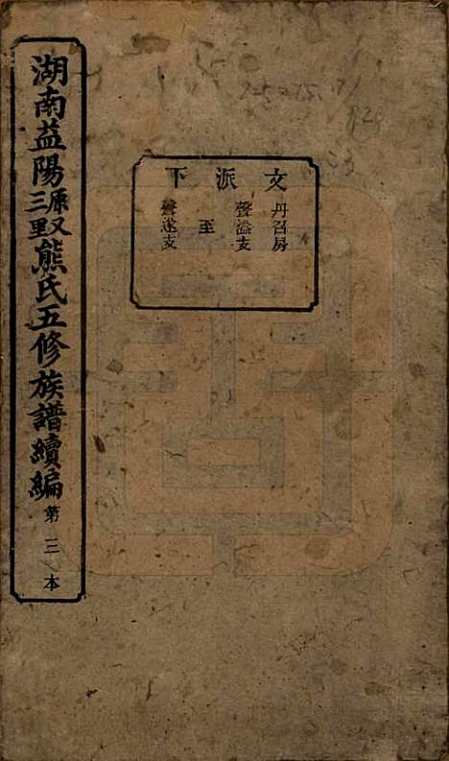 文派下
丹召房
聲溢支
至
聲遂支
湖南益陽三里熊氏五修族譜續編 第三本